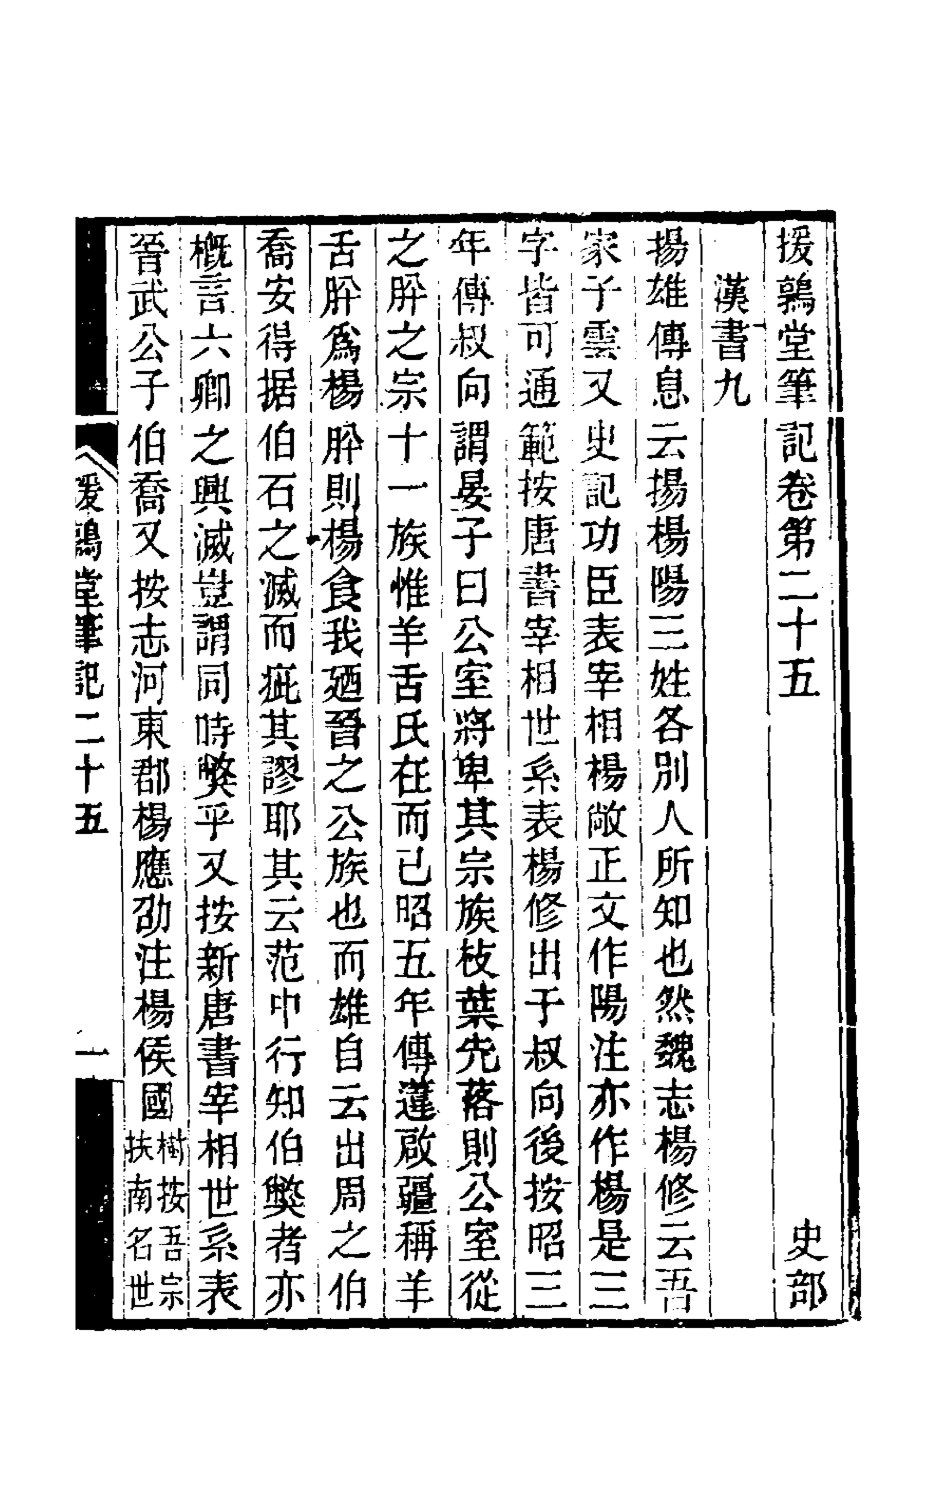 援鶉堂筆記卷第二十五　史部
漢書九
揚雄傳息云揚楊陽三姓各別人所知也然魏志楊修云吾
家子雲又史記功臣表宰相楊敞正文作陽注亦作楊是三
字皆可通範按唐書宰相世系表楊修出于叔向後按昭三
年傳叔向謂晏子曰公室將卑其宗族枝葉先落則公室從
之肸之宗十一族惟羊舌氏在而已昭五年傳薳啟疆稱羊
舌肸爲楊肸則楊食我廼晉之公族也而雄自云出周之伯
喬安得据伯石之滅而疵其謬耶其云范中行知伯獘者亦
槪言六卿之興滅豈謂同時獘乎又按新唐書宰相世系表
晉武公子伯喬又按志河東郡楊應劭注楊侯國樹按吾宗扶南名世
援鶉堂筆記二十五　一